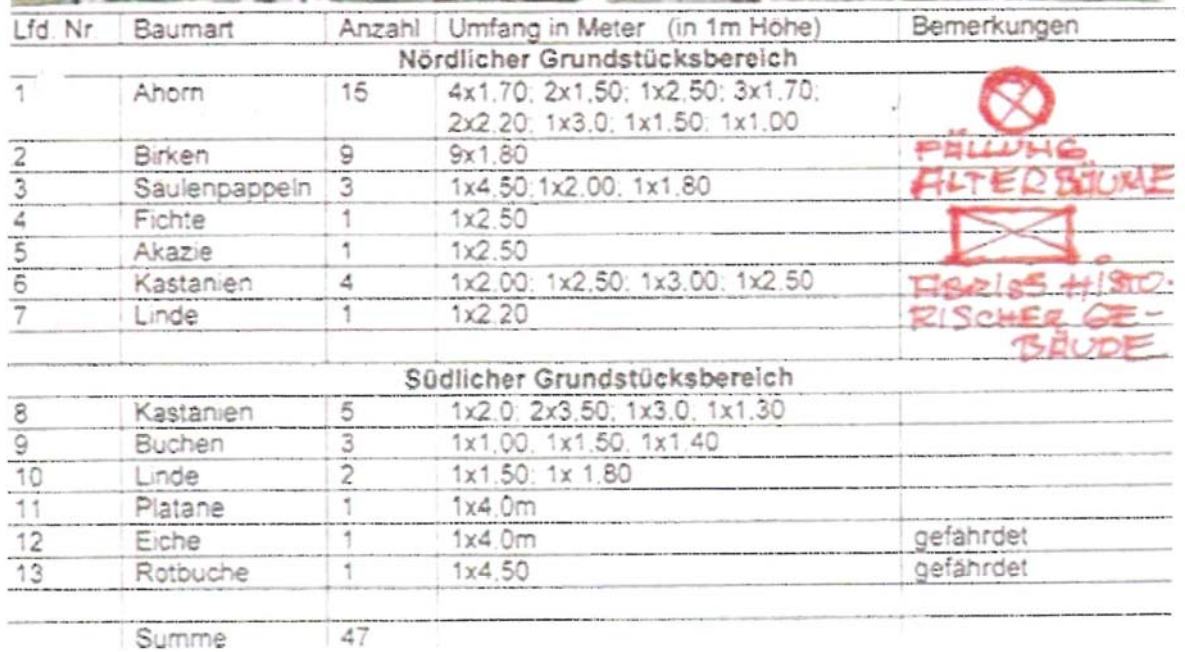 Lfd. Nr Baumart Anzahl Umfang in Meter (in 1m Höhe) Bemerkungen
Nördlicher Grundstücksbereich
1 Ahorn 15 4x1,70; 2x1,50; 1x2,50; 3x1,70;
2x2,20; 1x3,0; 1x1,50; 1x1,00
2 Birken 9 9x1,80
3 Säulenpappeln 3 1x4,50;1x2,00; 1x1,80
4 Fichte 1 1x2,50
5 Akazie 1 1x2,50
6 Kastanien 4 1x2,00; 1x2,50; 1x3,00; 1x2,50
7 Linde 1 1x2,20
FÄLLUNG
ALTER BÄUME
ABRISS HISTO-
RISCHER GE-
BÄUDE
Südlicher Grundstücksbereich
8 Kastanien 5 1x2,0; 2x3,50; 1x3,0; 1x1,30
9 Buchen 3 1x1,00, 1x1,50, 1x1,40
10 Linde 2 1x1,50; 1x 1,80
11 Platane 1 1x4,0m
12 Eiche 1 1x4,0m gefährdet
13 Rotbuche 1 1x4,50 gefährdet
Summe 47